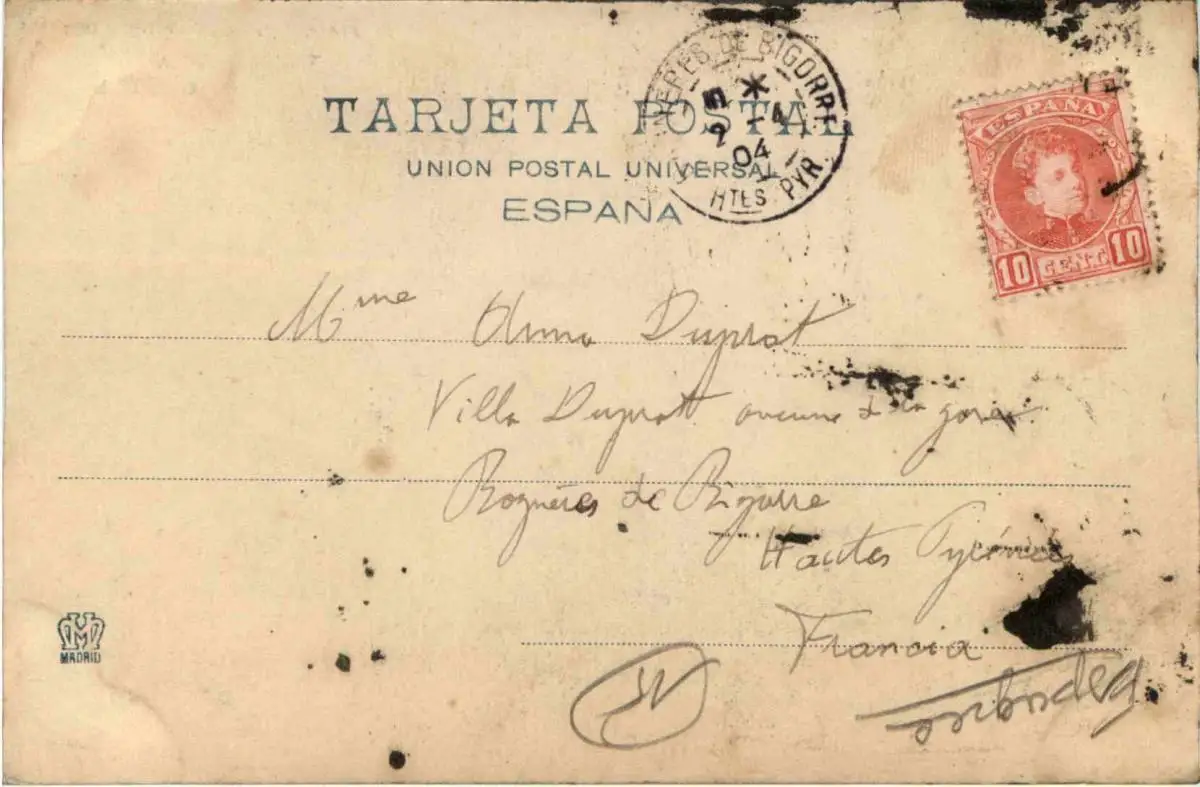 TARJETA POSTAL
UNION POSTAL UNIVERSAL
ESPAÑA
NERES DE BIGORRE
25 - 4
04
HTES PYR.
ESPAÑA
10 CENT 10
Mme Duprat
Villa Duprat avenue de la gare
Bagnères de Bigorre
Hautes Pyrénées
Francia
MADRID